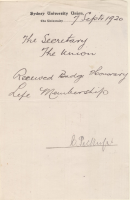 Sydney University Union
The University
7 Sept 1920
The Secretary
The Union
Received Badge Honorary
Life Membership